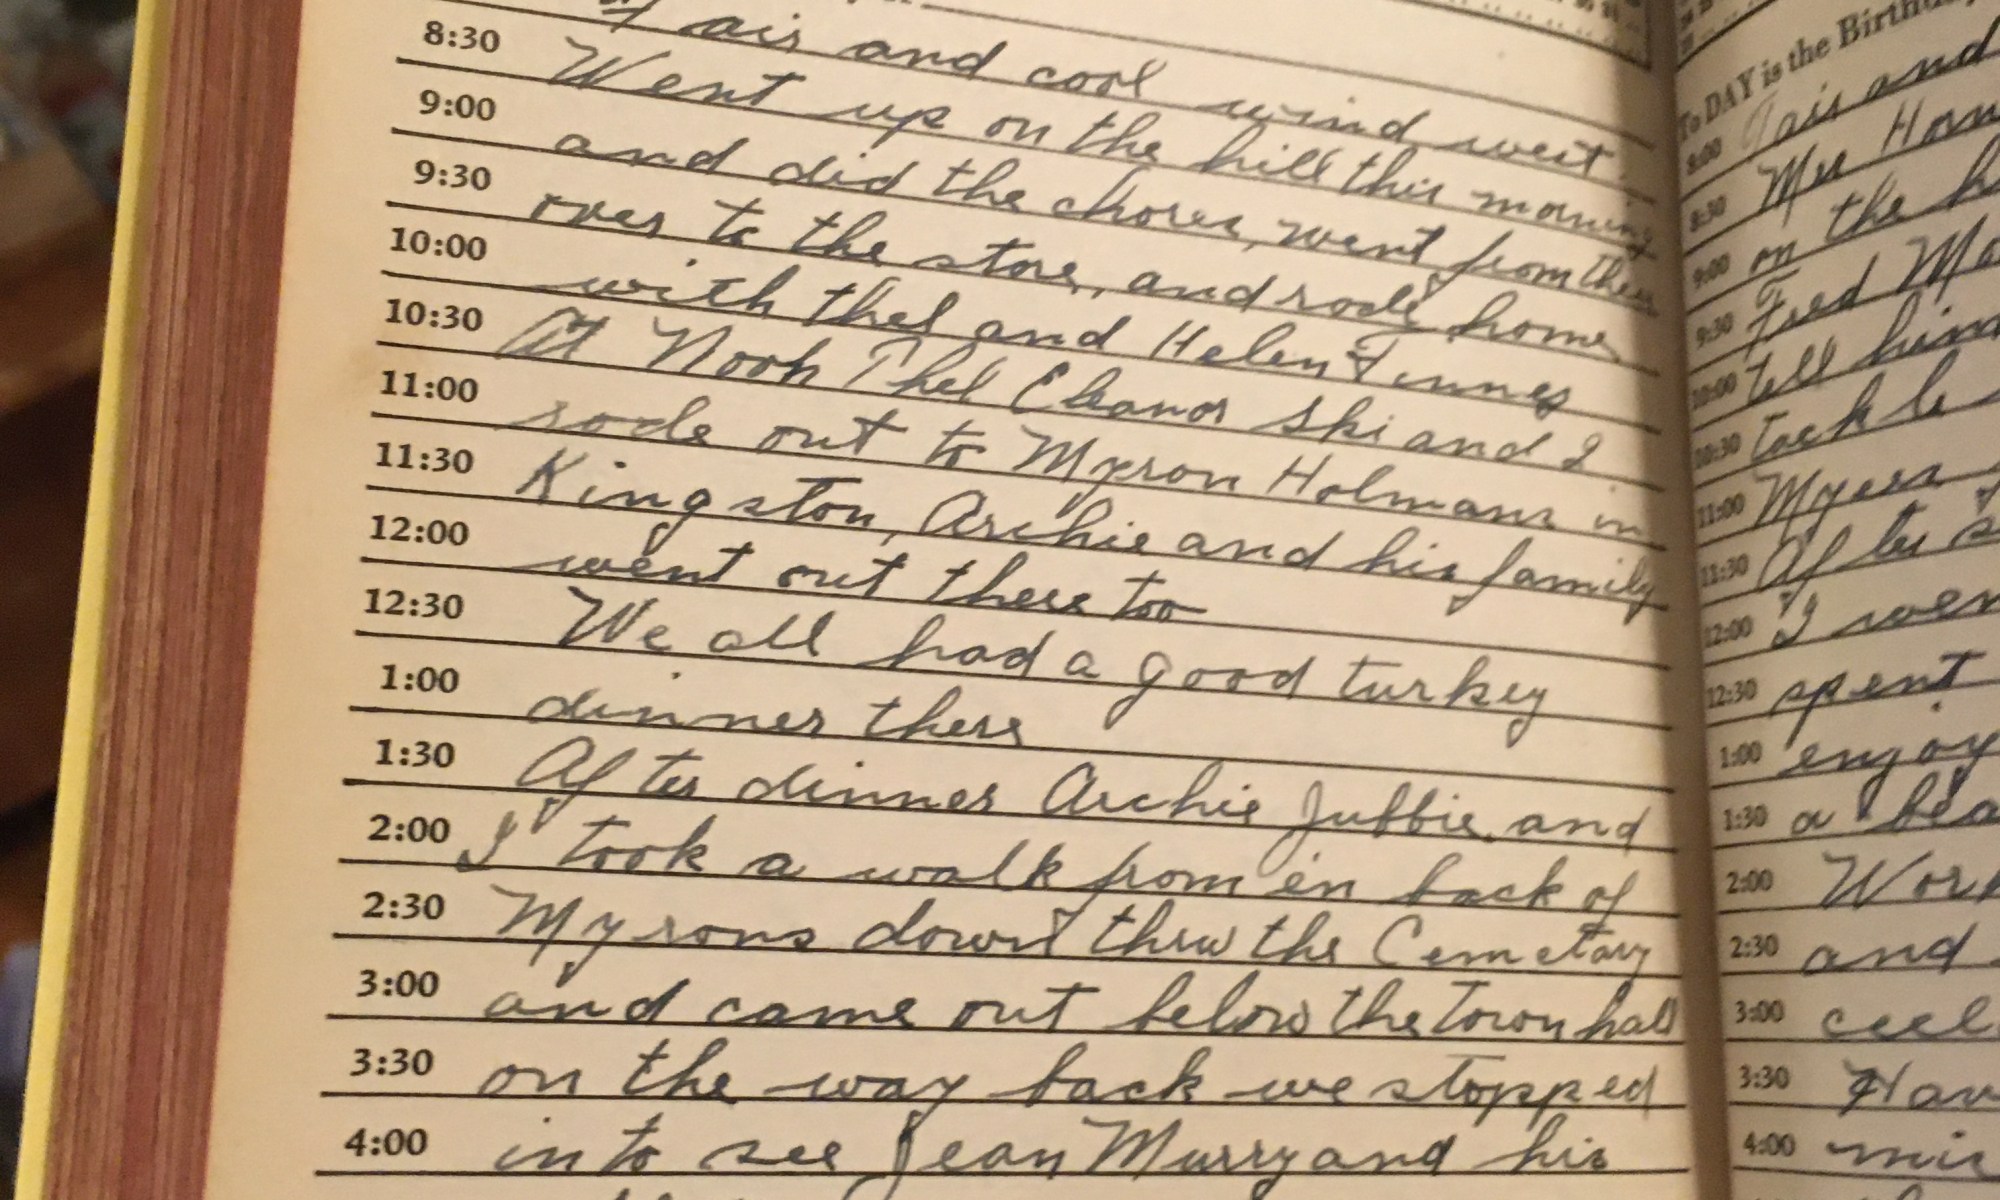 Fair and cool wind west.
8:30 Went up on the hill this morning
9:00 and did the chores, went from there
9:30 over to the store, and rode home
10:00 with thel and Helen Tinnes
10:30 At Noon Thel Eleanor Ski and I
11:00 rode out to Myron Holmans in
11:30 Kingston, Archie and his family
12:00 went out there too
12:30 We all had a good turkey
1:00 dinner there
1:30 After dinner Archie Juffie and
2:00 I took a walk from in back of
2:30 Myrons down thru the Cemetary
3:00 and came out below the town hall
3:30 on the way back we stopped
4:00 in to see Jean Murry and his
To DAY is the Birthday
8:00 Fair and
8:30 Mrs
9:00 on the
9:30 Fred
10:00 tell him
10:30 tack
11:00 Myers
11:30 After
12:00 I wen
12:30 spent
1:00 enjoy
1:30 a
2:00 Wor
2:30 and
3:00
3:30
4:00